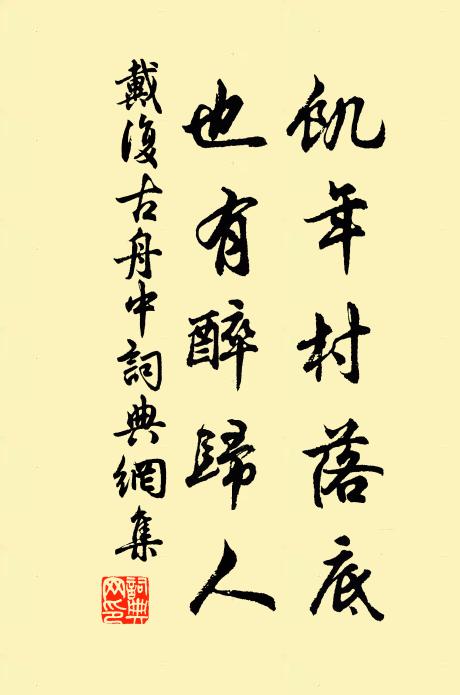 飢年村落底
也有醉歸人
戴復古舟中詞典網集
詞典网印